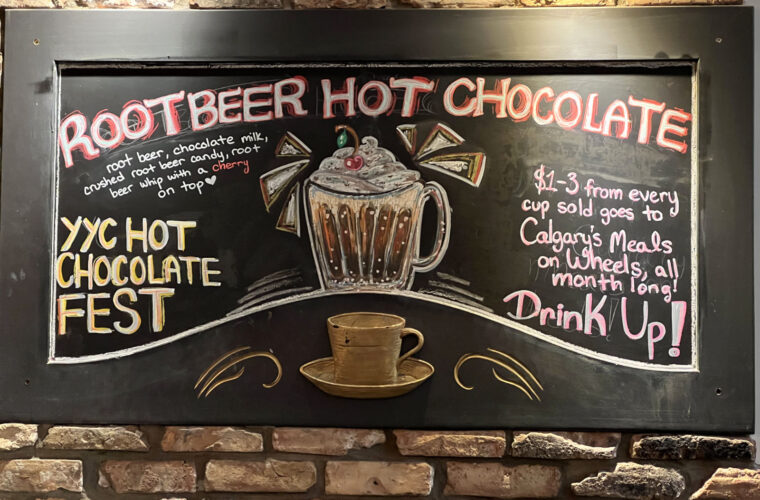 ROOTBEER HOT CHOCOLATE
root beer, chocolate milk,
crushed root beer candy, root
beer whip with a cherry
on top♥
YYC HOT
CHOCOLATE
FEST
$1-3 from every
cup sold goes to
Calgary's Meals
on Wheels, all
month long!
Drink Up!